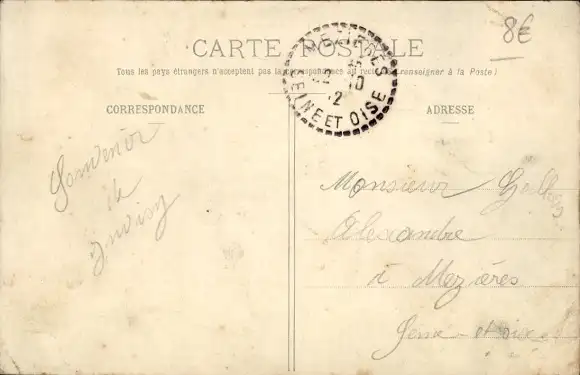 8€
CARTE POSTALE
Tous les pays étrangers n'acceptent pas la correspondance au recto (se renseigner à la Poste)
MEZIERES
10
12
SEINE ET OISE
CORRESPONDANCE
ADRESSE
Souvenir
de
Juvisy
Monsieur
Alexandre
à Mezières
Seine-et-oise